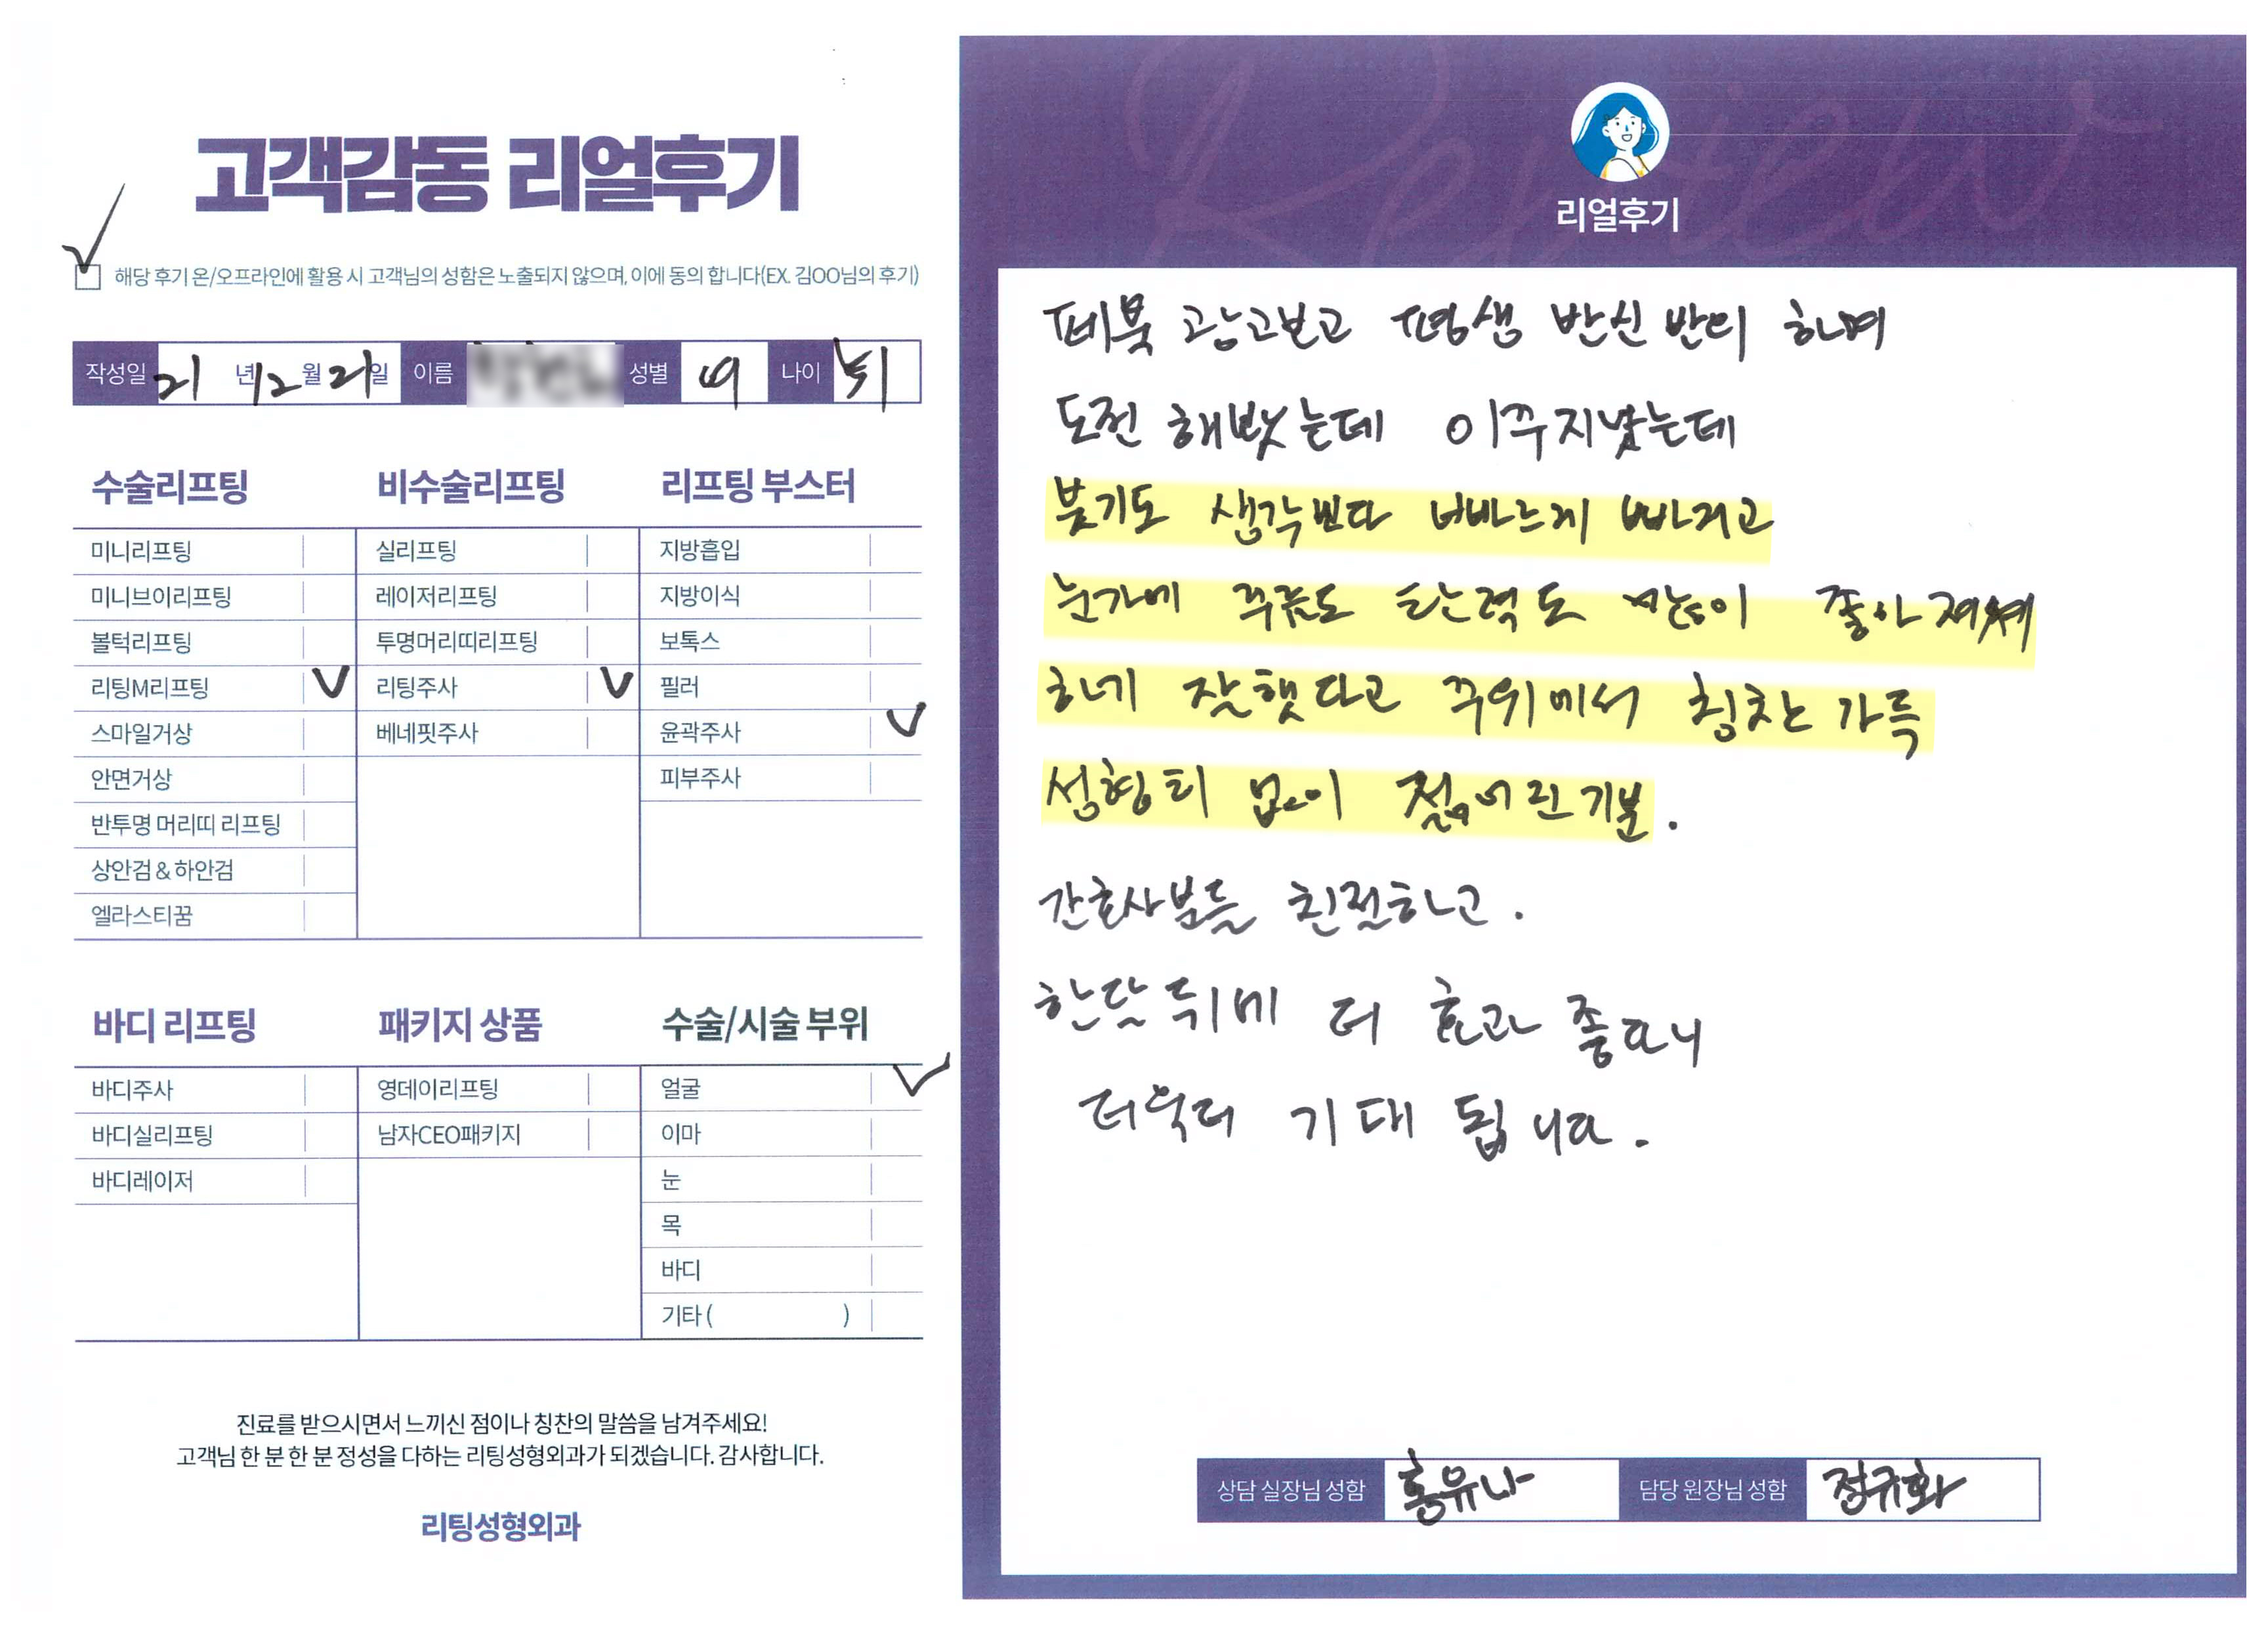 고객감동 리얼후기
해당 후기 온/오프라인에 활용 시 고객님의 성함은 노출되지 않으며, 이에 동의 합니다(EX. 김OO님의 후기)
작성일 21 년 12 월 21 일 이름 성별 여 나이
수술리프팅
미니리프팅
미니브이리프팅
볼턱리프팅
리팅M리프팅 V
스마일거상
안면거상
반투명 머리띠 리프팅
상안검 & 하안검
엘라스티꿈
비수술리프팅
실리프팅
레이저리프팅
투명머리띠리프팅
리팅주사 V
베네핏주사
리프팅 부스터
지방흡입
지방이식
보톡스
필러
윤곽주사 V
피부주사
바디 리프팅
바디주사
바디실리프팅
바디레이저
패키지 상품
영데이리프팅
남자CEO패키지
수술/시술 부위
얼굴 V
이마
눈
목
바디
기타 ( )
진료를 받으시면서 느끼신 점이나 칭찬의 말씀을 남겨주세요!
고객님 한 분 한 분 정성을 다하는 리팅성형외과가 되겠습니다. 감사합니다.
리팅성형외과
Review
리얼후기
페북 광고보고 평생 반신반의 하며
도전 해봤는데 이쭈지났는데
붓기도 생각보다 빠르게 빠지고
눈가에 주름도 탄력도 많이 좋아져
하기 잘했다고 주위에서 칭찬 가득
성형티 없이 젊어진기분.
간호사분들 친절하고.
한달뒤에 더 효과 좋다니
더욱더 기대 됩니다.
상담 실장님 성함 홍유나 담당 원장님 성함 정규화